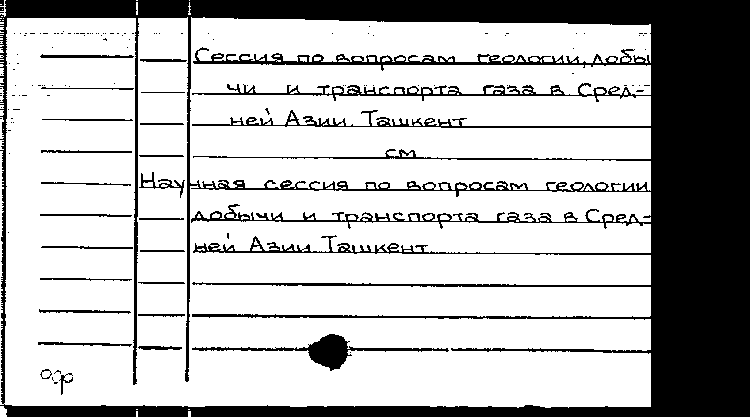 Сессия по вопросам геологии, добы
чи и транспорта газа в Сред-
ней Азии. Ташкент
см
Научная сессия по вопросам геологии
добычи и транспорта газа в Сред-
ней Азии. Ташкент